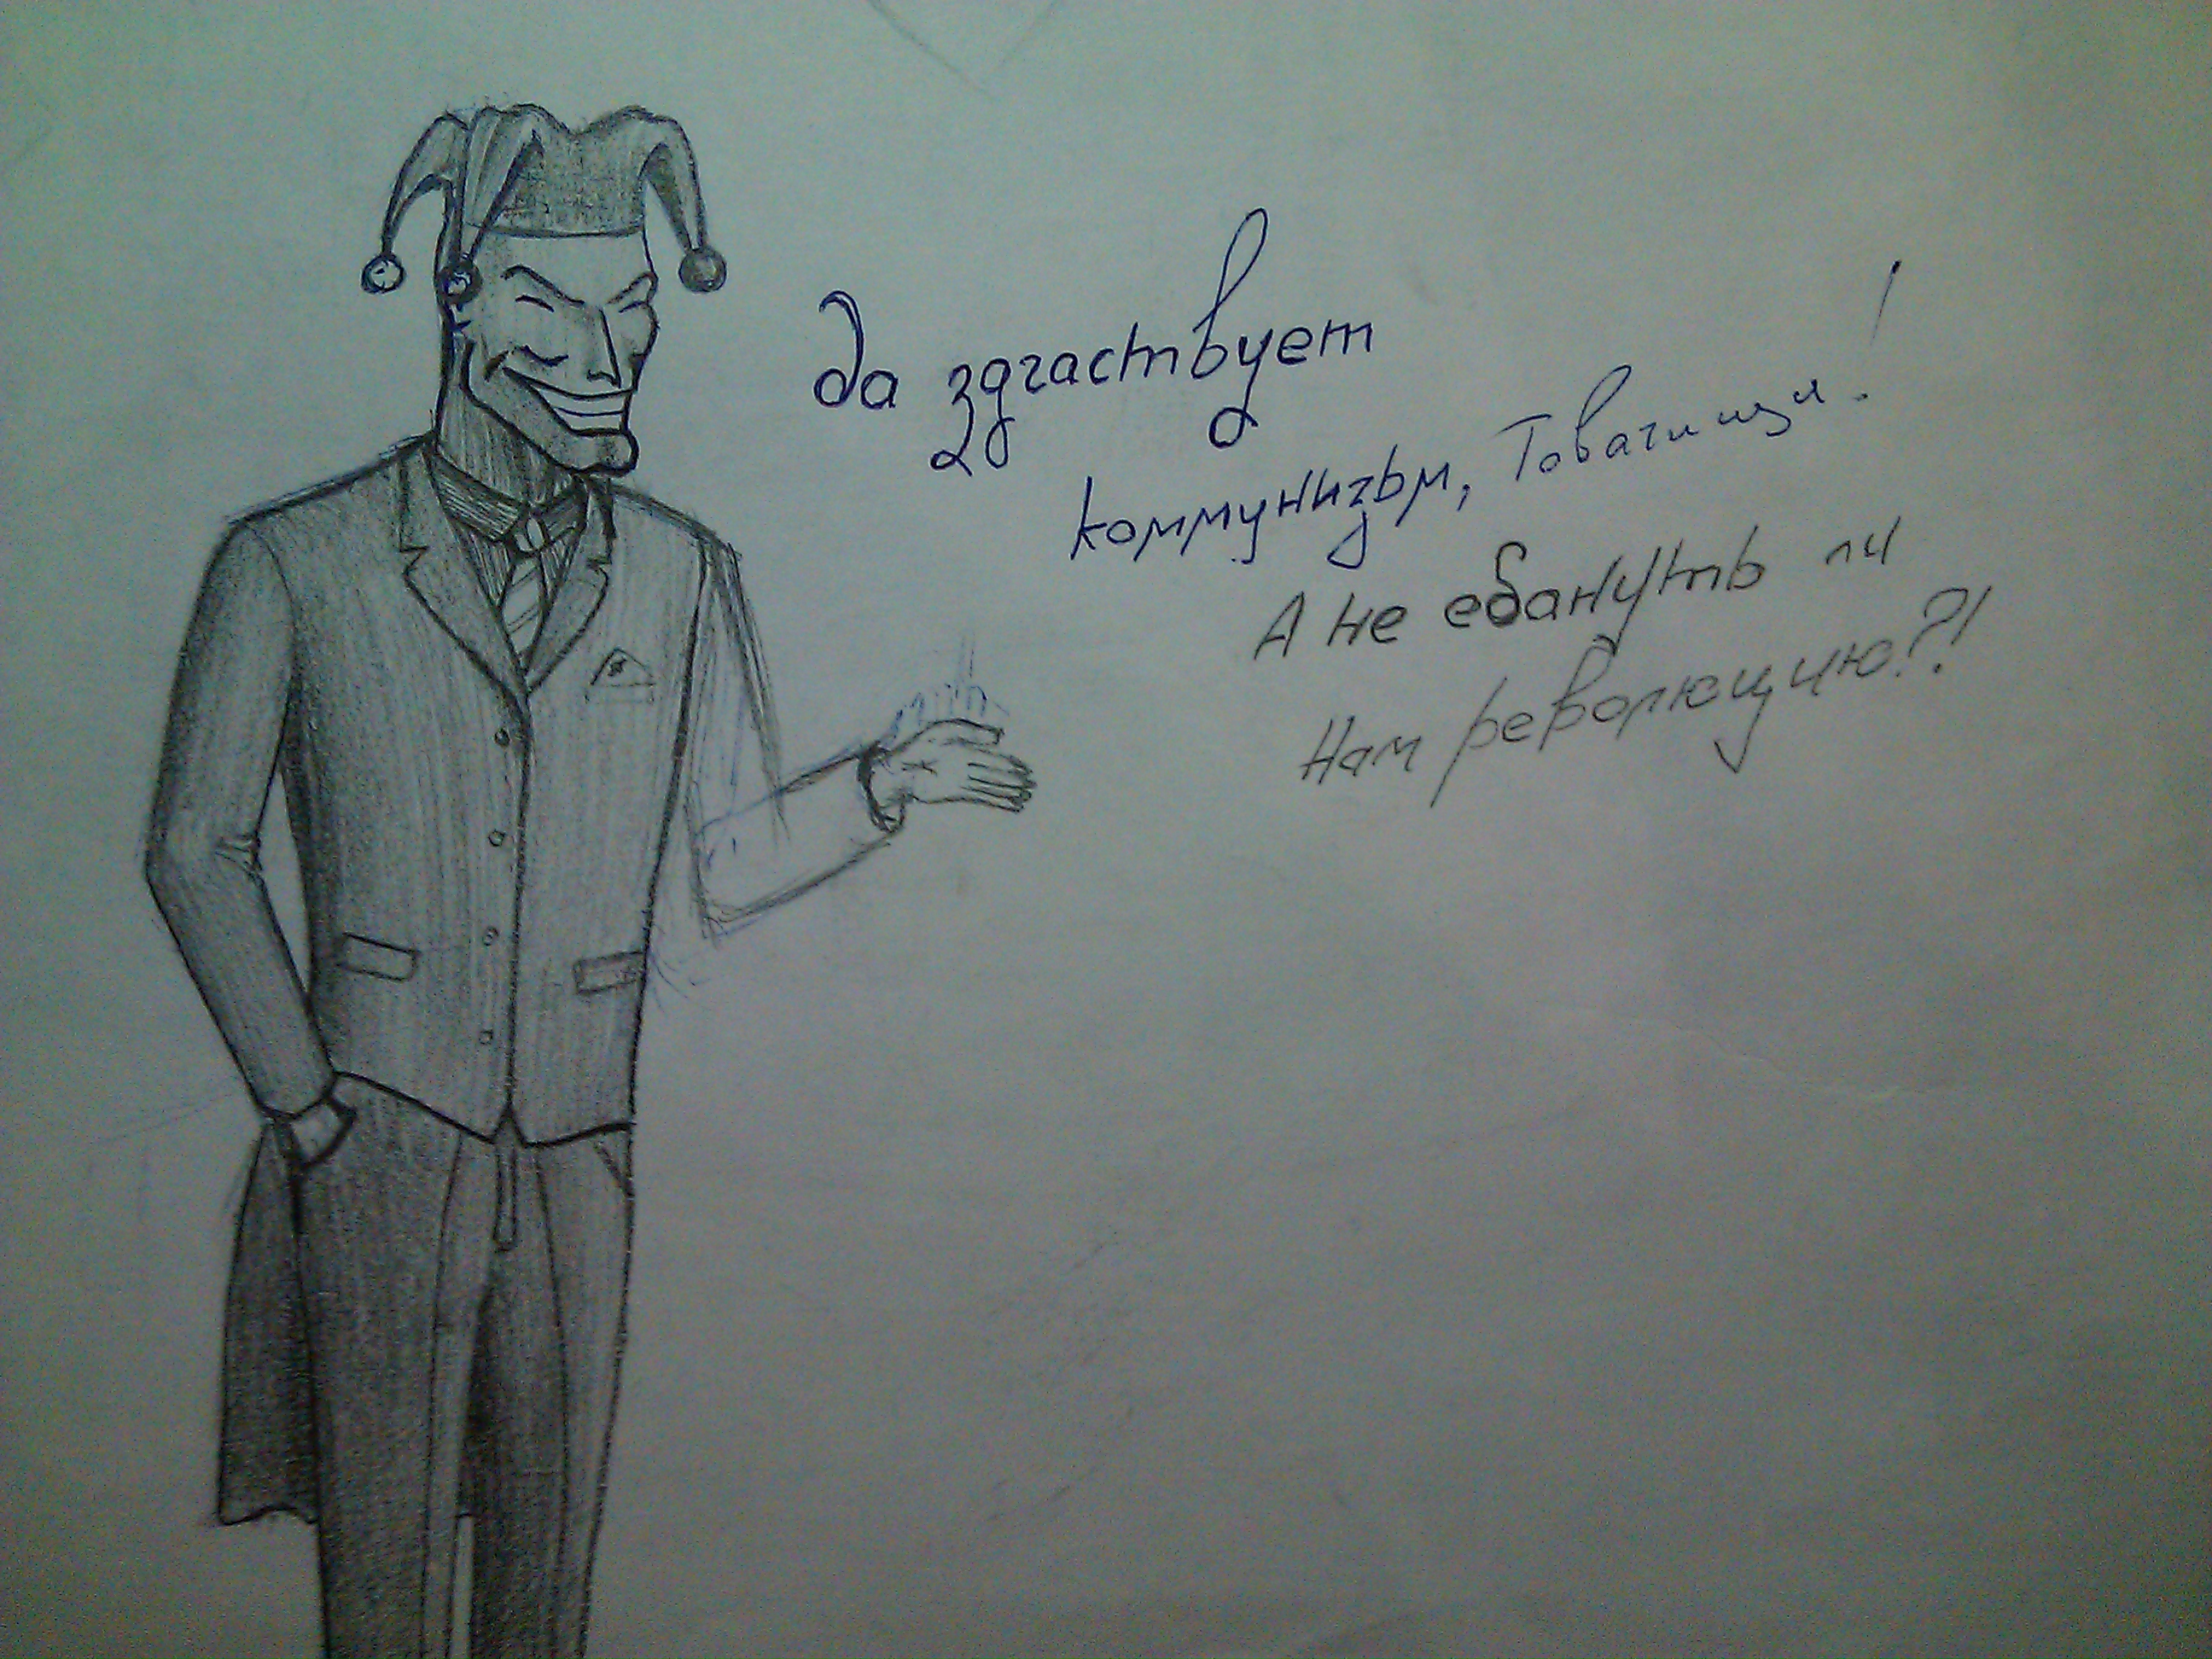 да здгаствует
коммунизьм, Товагищи!
А не ебануть ли
Нам революцию?!